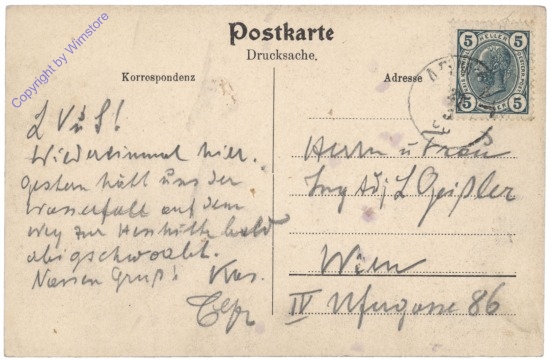 Copyright by Wimstore
Postkarte
Drucksache.
Korrespondenz
Adresse
5 HELLER 5
5 5
L V u S!
Wiedereinmal hier.
Gestern hätt uns der
Wasserfall auf dem
Weg zur hütte bald
abigschwoabt.
Nassen Gruß!
Herrn u Frau
Ing Adj L Geißler
Wien
IV gasse 86